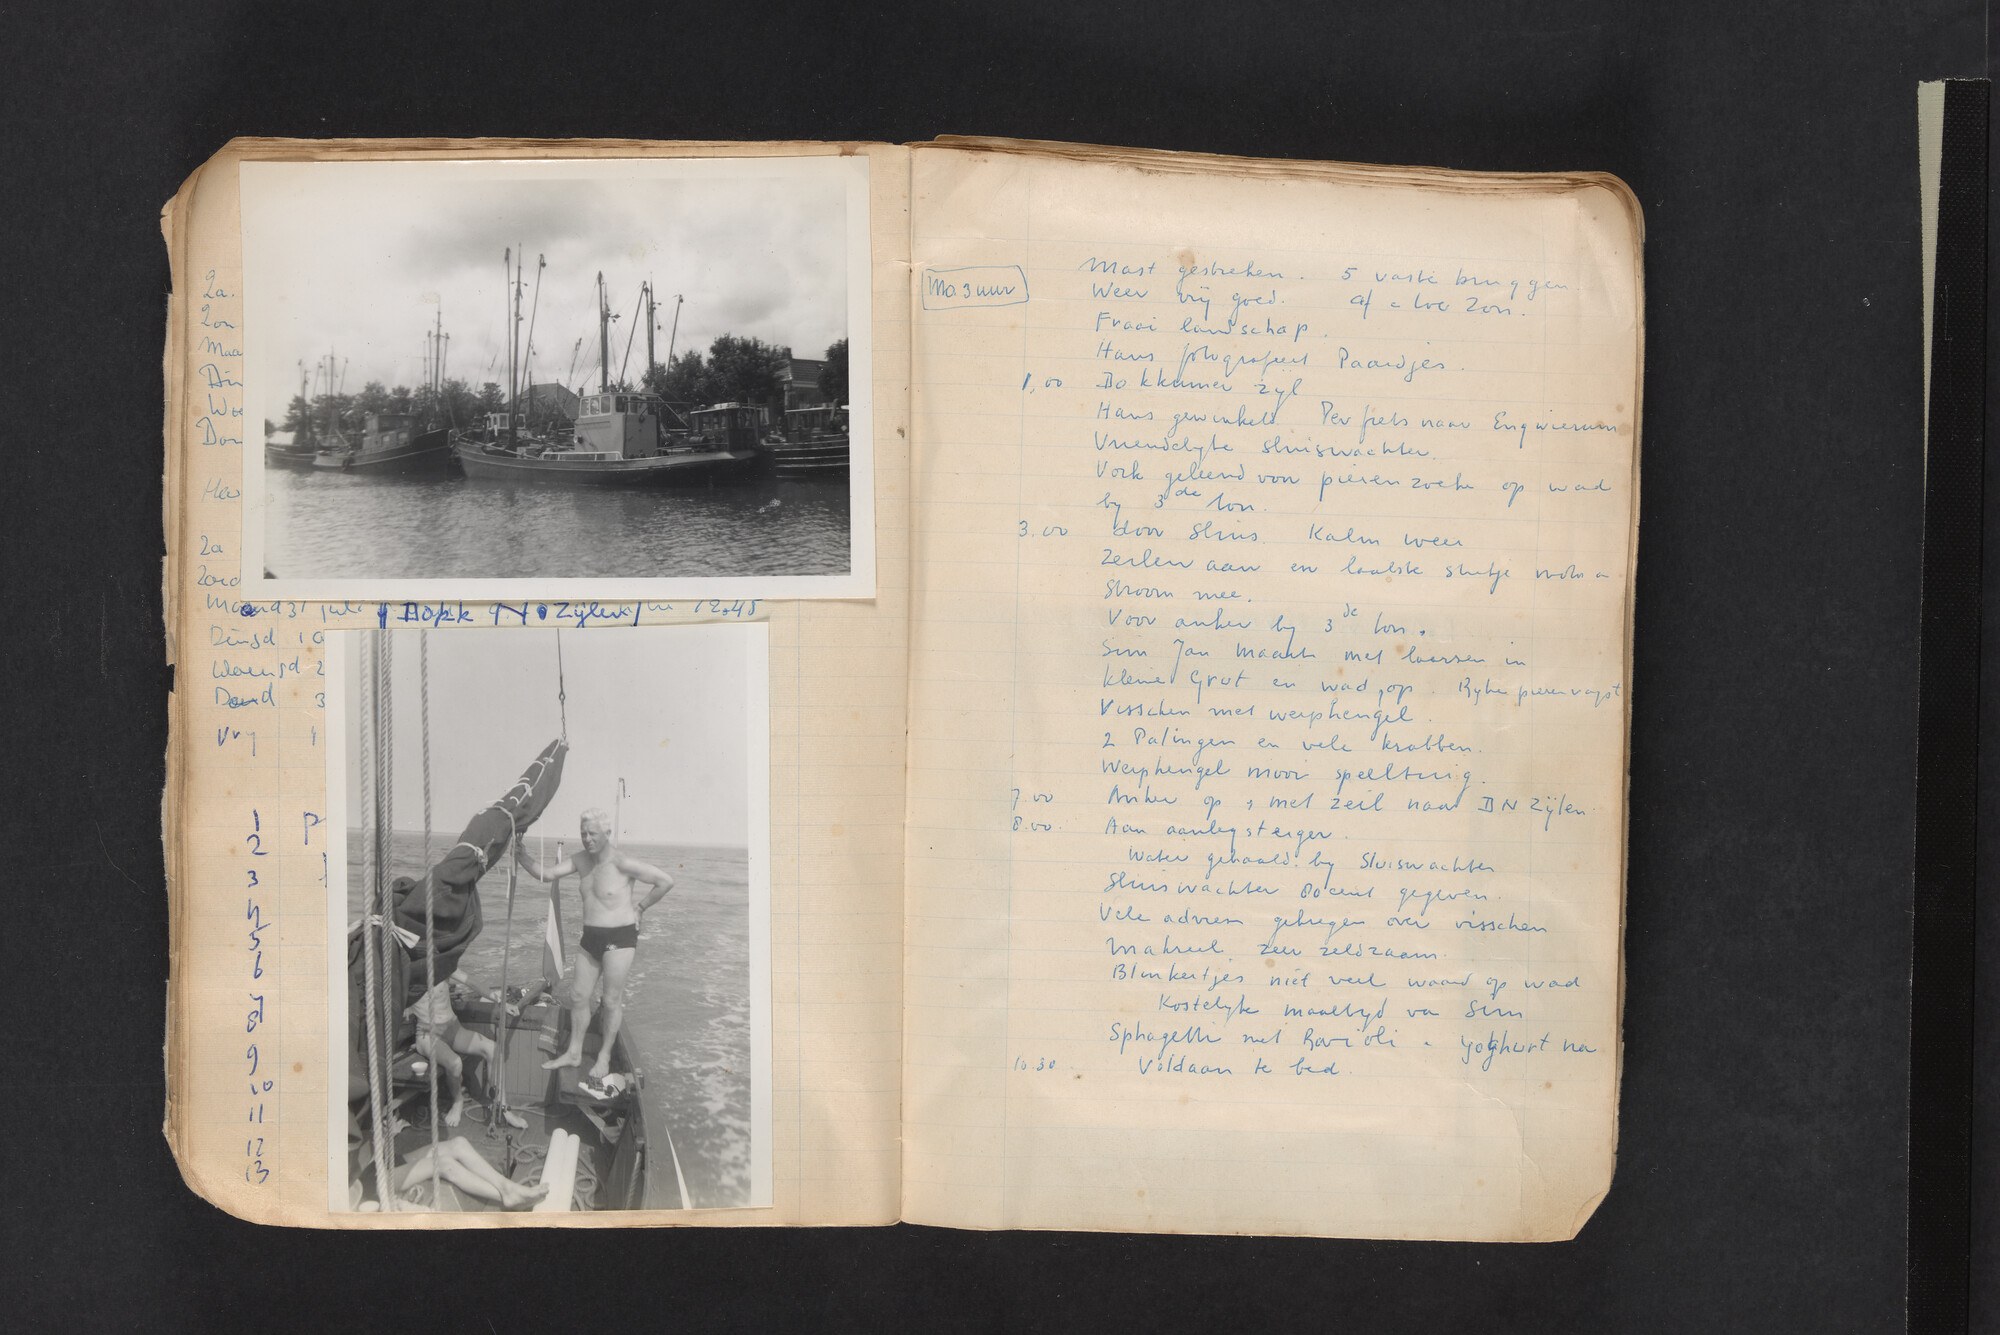 2a.
Zon
Maa
Din
Woe
Don
2a
Maand 31 juli Dokk N. Zijlen 12.45
Dingsd 1
Woensd 2
Dond 3
Vry
1
2
3
4
5
6
7
8
9
10
11
12
13
Mast gestreken. 5 vaste bruggen
Ma 3 uur
Weer vrij goed. Af a toe Zon.
Fraai landschap.
Hans fotografeert Paardjes.
1,00 Dokkumer zijl
Hans gewinkeld Per fiets naar Engwierum
Vriendelyke sluiswachter.
Vork geleend voor pieren zoeken op wad
by 3de ton.
3.00 door Sluis. Kalm weer
Zeilen aan en laatste stukje motor
Stroom mee.
Voor anker by 3de ton.
Sim Jan Maarten met laarzen in
kleine Grot en wad op. Ryke pieren vangst
Visschen met werphengel.
2 Palingen en vele krabben.
Werphengel mooi speeltuig.
7.00 Anker op, met zeil naar DN Zijlen.
8.00. Aan aanlegsteiger.
Water gehaald by Sluiswachter
Sluiswachter 80 cent gegeven.
Vele adviezen gekregen over visschen
Makreel zeer zeldzaam.
Blinkertjes niet veel waard op wad
Kostelyke maaltyd va Sim
Sphagetti met Ravioli - yoghurt na
10.30 Voldaan te bed.